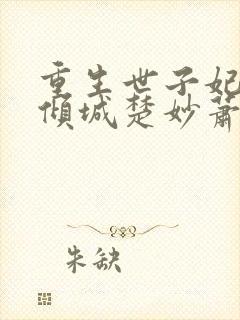 重生世子妃
倾城楚妙萧
朱缺